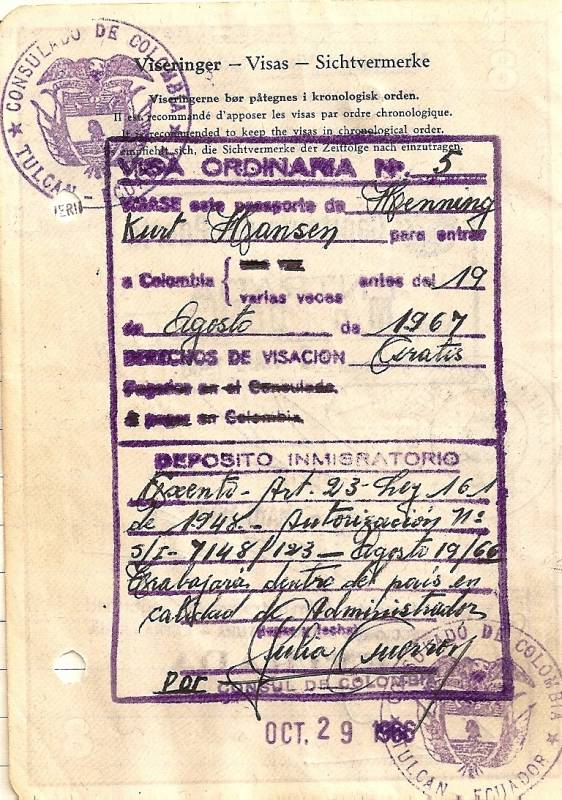 CONSULADO DE COLOMBIA
TULCAN - ECUADOR
Viseringer – Visas – Sichtvermerke
Viseringerne bør påtegnes i kronologisk orden.
Il est recommandé d'apposer les visas par ordre chronologique.
It is recommended to keep the visas in chronological order.
empfiehlt sich, die Sichtvermerke der Zeitfolge nach einzutragen.
VISA ORDINARIA Nº. 5
VISASE este pasaporte de Henning
Kurt Hansen para entrar
a Colombia { una vez antes del 19
varias veces
de Agosto de 1967
DERECHOS DE VISACION Gratis
Pagados en el Consulado.
A pagar en Colombia.
DEPOSITO INMIGRATORIO
Exento - Art. 23 - Ley 161
de 1948. - Autorización Nº
S/I - 7148/123 - Agosto 19/66
Trabajará dentro del país en
calidad de Administrador
Julia Guerrón
por CONSUL DE COLOMBIA
OCT. 29 1966
CONSULADO DE COLOMBIA
TULCAN - ECUADOR